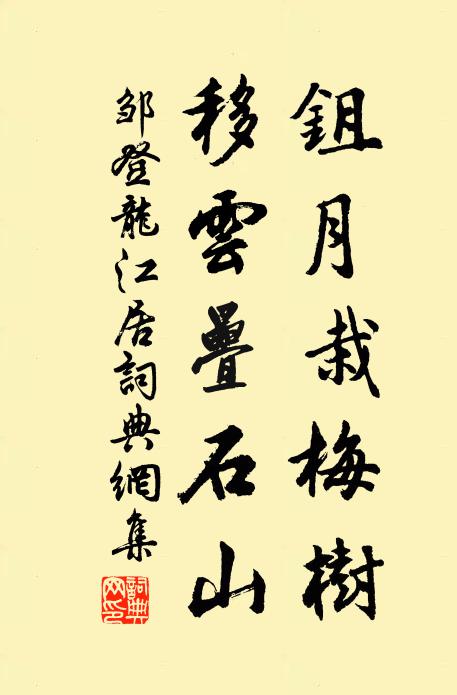 鉏月栽梅樹
移雲疊石山
鄒登龍江居詞典網集
詞典